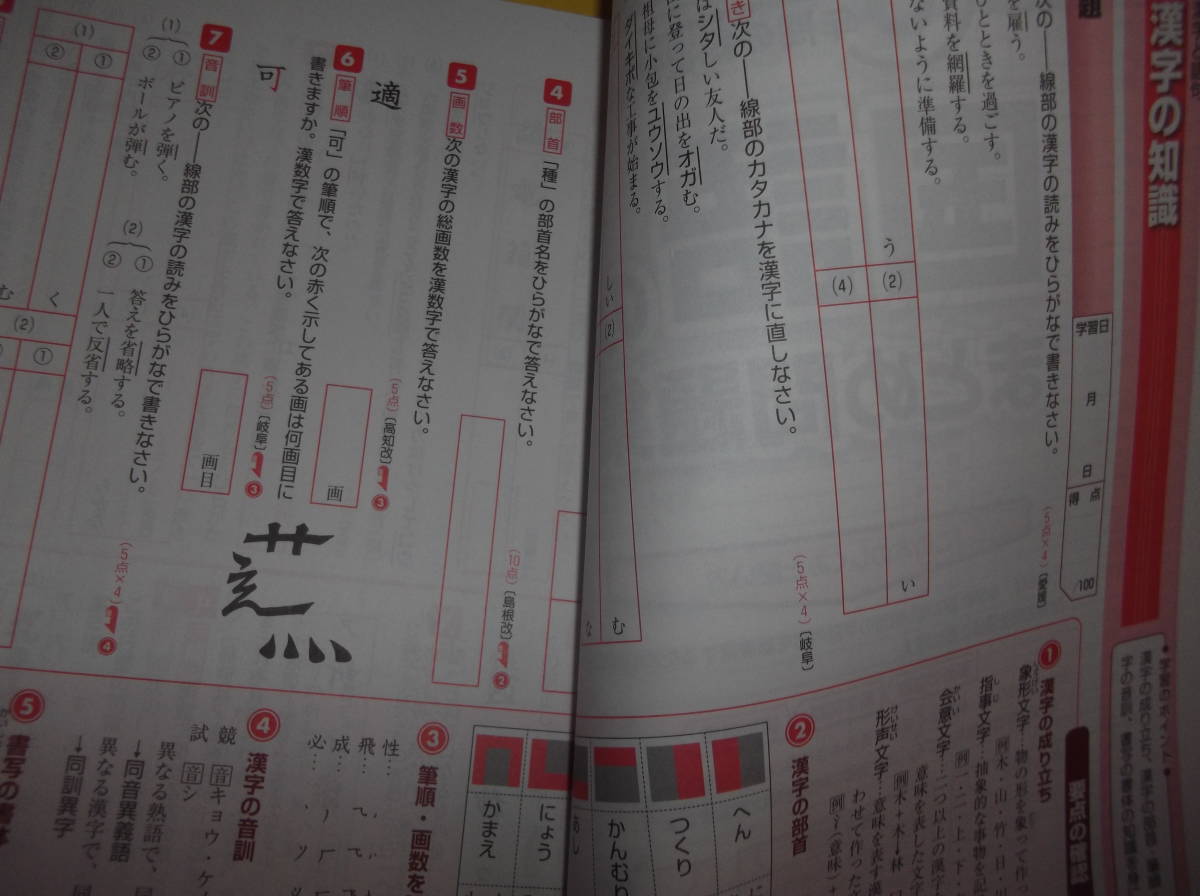 漢字の知識
学習日
月
日
得点
/100
次の――線部の漢字の読みをひらがなで書きなさい。
(5点×4)〔愛媛〕
を雇う。
ひとときを過ごす。
資料を網羅する。
ないように準備する。
う
(2)
(4)
い
き
次の――線部のカタカナを漢字に直しなさい。
(5点×4)〔岐阜〕
はシタしい友人だ。
に登って日の出をオガむ。
祖母に小包をユウソウする。
ダイキボな工事が始まる。
しい
(2)
む
な
4
部首
「種」の部首名をひらがなで答えなさい。
(10点)〔島根改〕
2
5
画数
次の漢字の総画数を漢数字で答えなさい。
適
(5点)〔高知改〕
3
画
6
筆順
「可」の筆順で、次の赤く示してある画は何画目に
書きますか。漢数字で答えなさい。
可
(5点)〔岐阜〕
3
画目
7
音訓
次の――線部の漢字の読みをひらがなで書きなさい。
(5点×4)
4
(1)
① ピアノを弾く。
② ボールが弾む。
(2)
① 答えを省略する。
② 一人で反省する。
(1)
①
②
く
む
(2)
①
学習のポイント
要点の確認
1 漢字の成り立ち
象形文字…物の形を象って作
例 木・山・竹・日・川
指事文字…抽象的な事物を記
例 一・二・上・下・
会意文字…二つ以上の漢字の
意味を表した文字
例 木+木→林
形声文字…意味を表す漢
わせて作った
2 漢字の部首
へん
つくり
かんむり
あし
にょう
かまえ
3 筆順・画数を
性…
飛…
成…
必…
4 漢字の音訓
競
音 キョウ・ケイ
試
音 シ
異なる熟語で、同
→同音異義語
異なる漢字で、同
→同訓異字
5 書写の書体